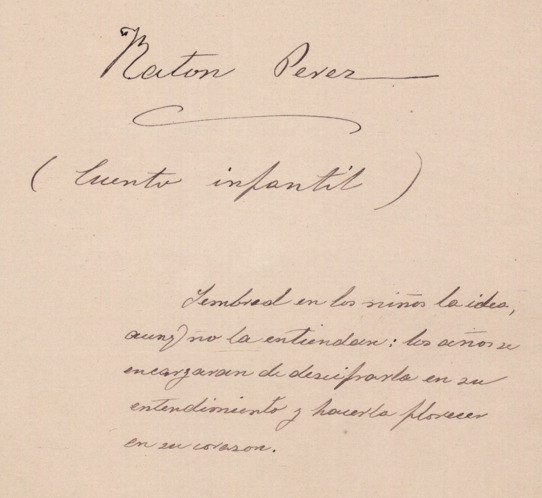 Raton Perez
( Cuento infantil )
Sembrad en los niños la idea,
aunq) no la entiendan: los años se
encargaran de descifrarla en su
entendimiento y hacerla florecer
en su corazon.